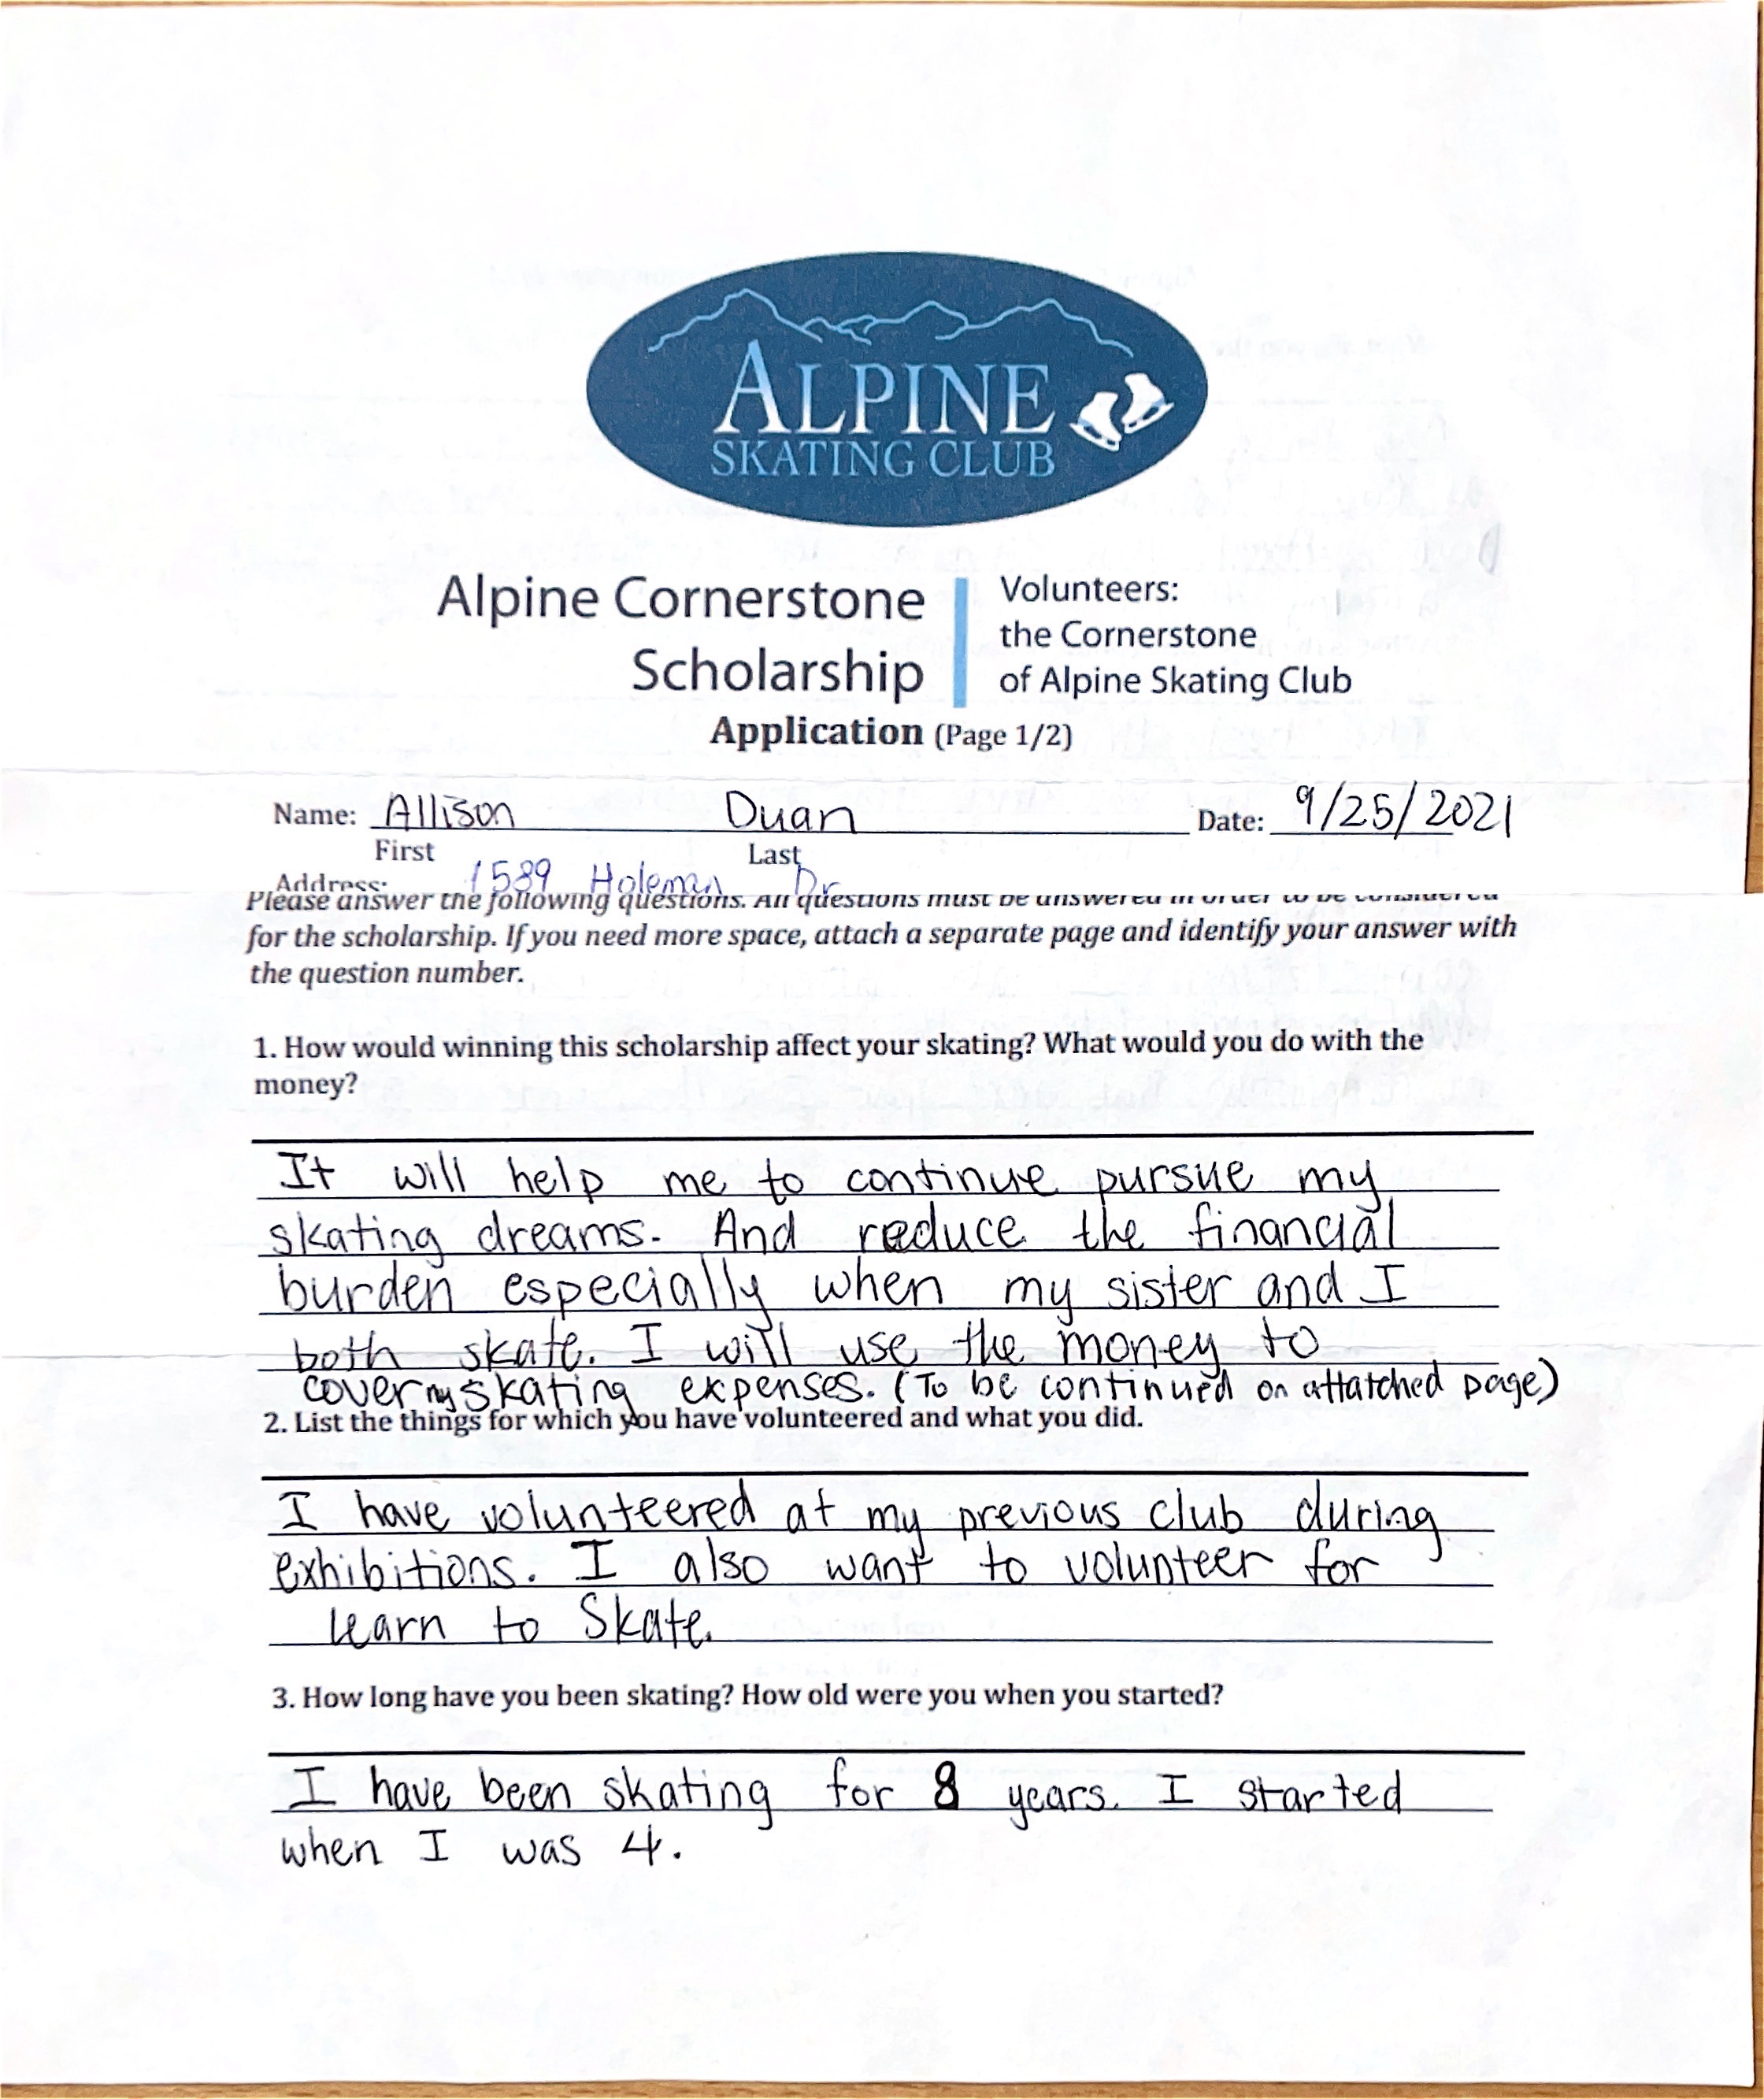 ALPINE
SKATING CLUB
Alpine Cornerstone
Scholarship
Volunteers:
the Cornerstone
of Alpine Skating Club
Application (Page 1/2)
Name: Allison Duan Date: 9/25/2021
First Last
Address: 1589 Holeman Dr
Please answer the following questions. All questions must be answered in order to be considered
for the scholarship. If you need more space, attach a separate page and identify your answer with
the question number.
1. How would winning this scholarship affect your skating? What would you do with the
money?
It will help me to continue pursue my
skating dreams. And reduce the financial
burden especially when my sister and I
both skate. I will use the money to
cover my skating expenses. (To be continued on attatched page)
2. List the things for which you have volunteered and what you did.
I have volunteered at my previous club during
exhibitions. I also want to volunteer for
learn to Skate.
3. How long have you been skating? How old were you when you started?
I have been skating for 8 years. I started
when I was 4.